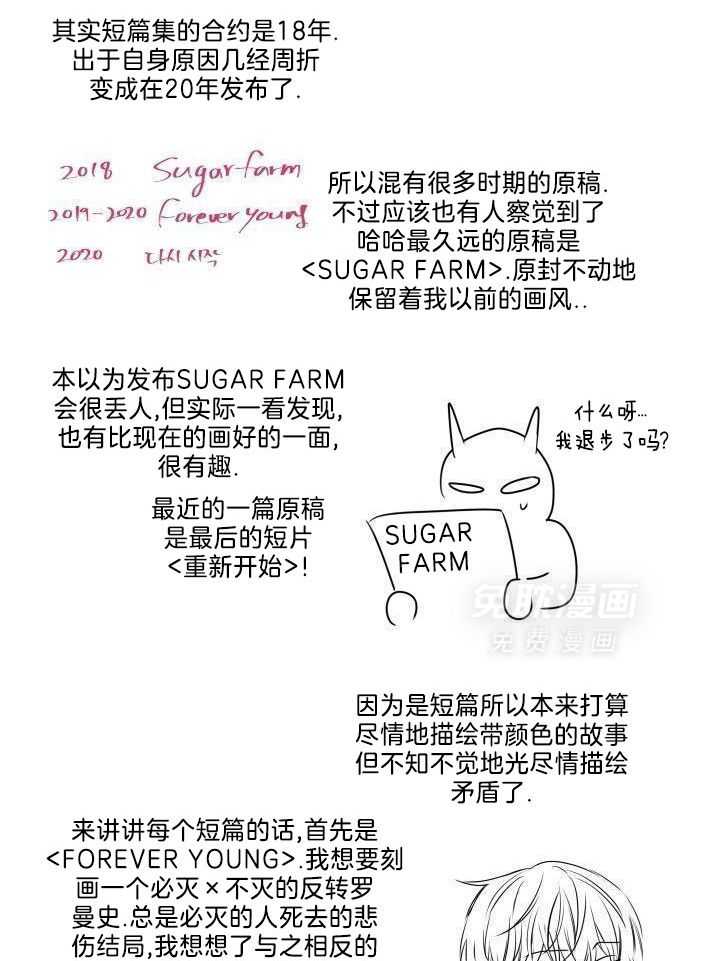 其实短篇集的合约是18年.
出于自身原因几经周折
变成在20年发布了.
2018 Sugar farm
2019-2020 Forever young
2020 다시 시작
所以混有很多时期的原稿.
不过应该也有人察觉到了
哈哈最久远的原稿是
<SUGAR FARM>.原封不动地
保留着我以前的画风..
本以为发布SUGAR FARM
会很丢人,但实际一看发现,
也有比现在的画好的一面,
很有趣.
什么呀...
我退步了吗?
最近的一篇原稿
是最后的短片
<重新开始>!
SUGAR
FARM
免耽漫画
免费漫画
因为是短篇所以本来打算
尽情地描绘带颜色的故事
但不知不觉地光尽情描绘
矛盾了.
来讲讲每个短篇的话,首先是
<FOREVER YOUNG>.我想要刻
画一个必灭×不灭的反转罗
曼史.总是必灭的人死去的悲
伤结局,我想想了与之相反的